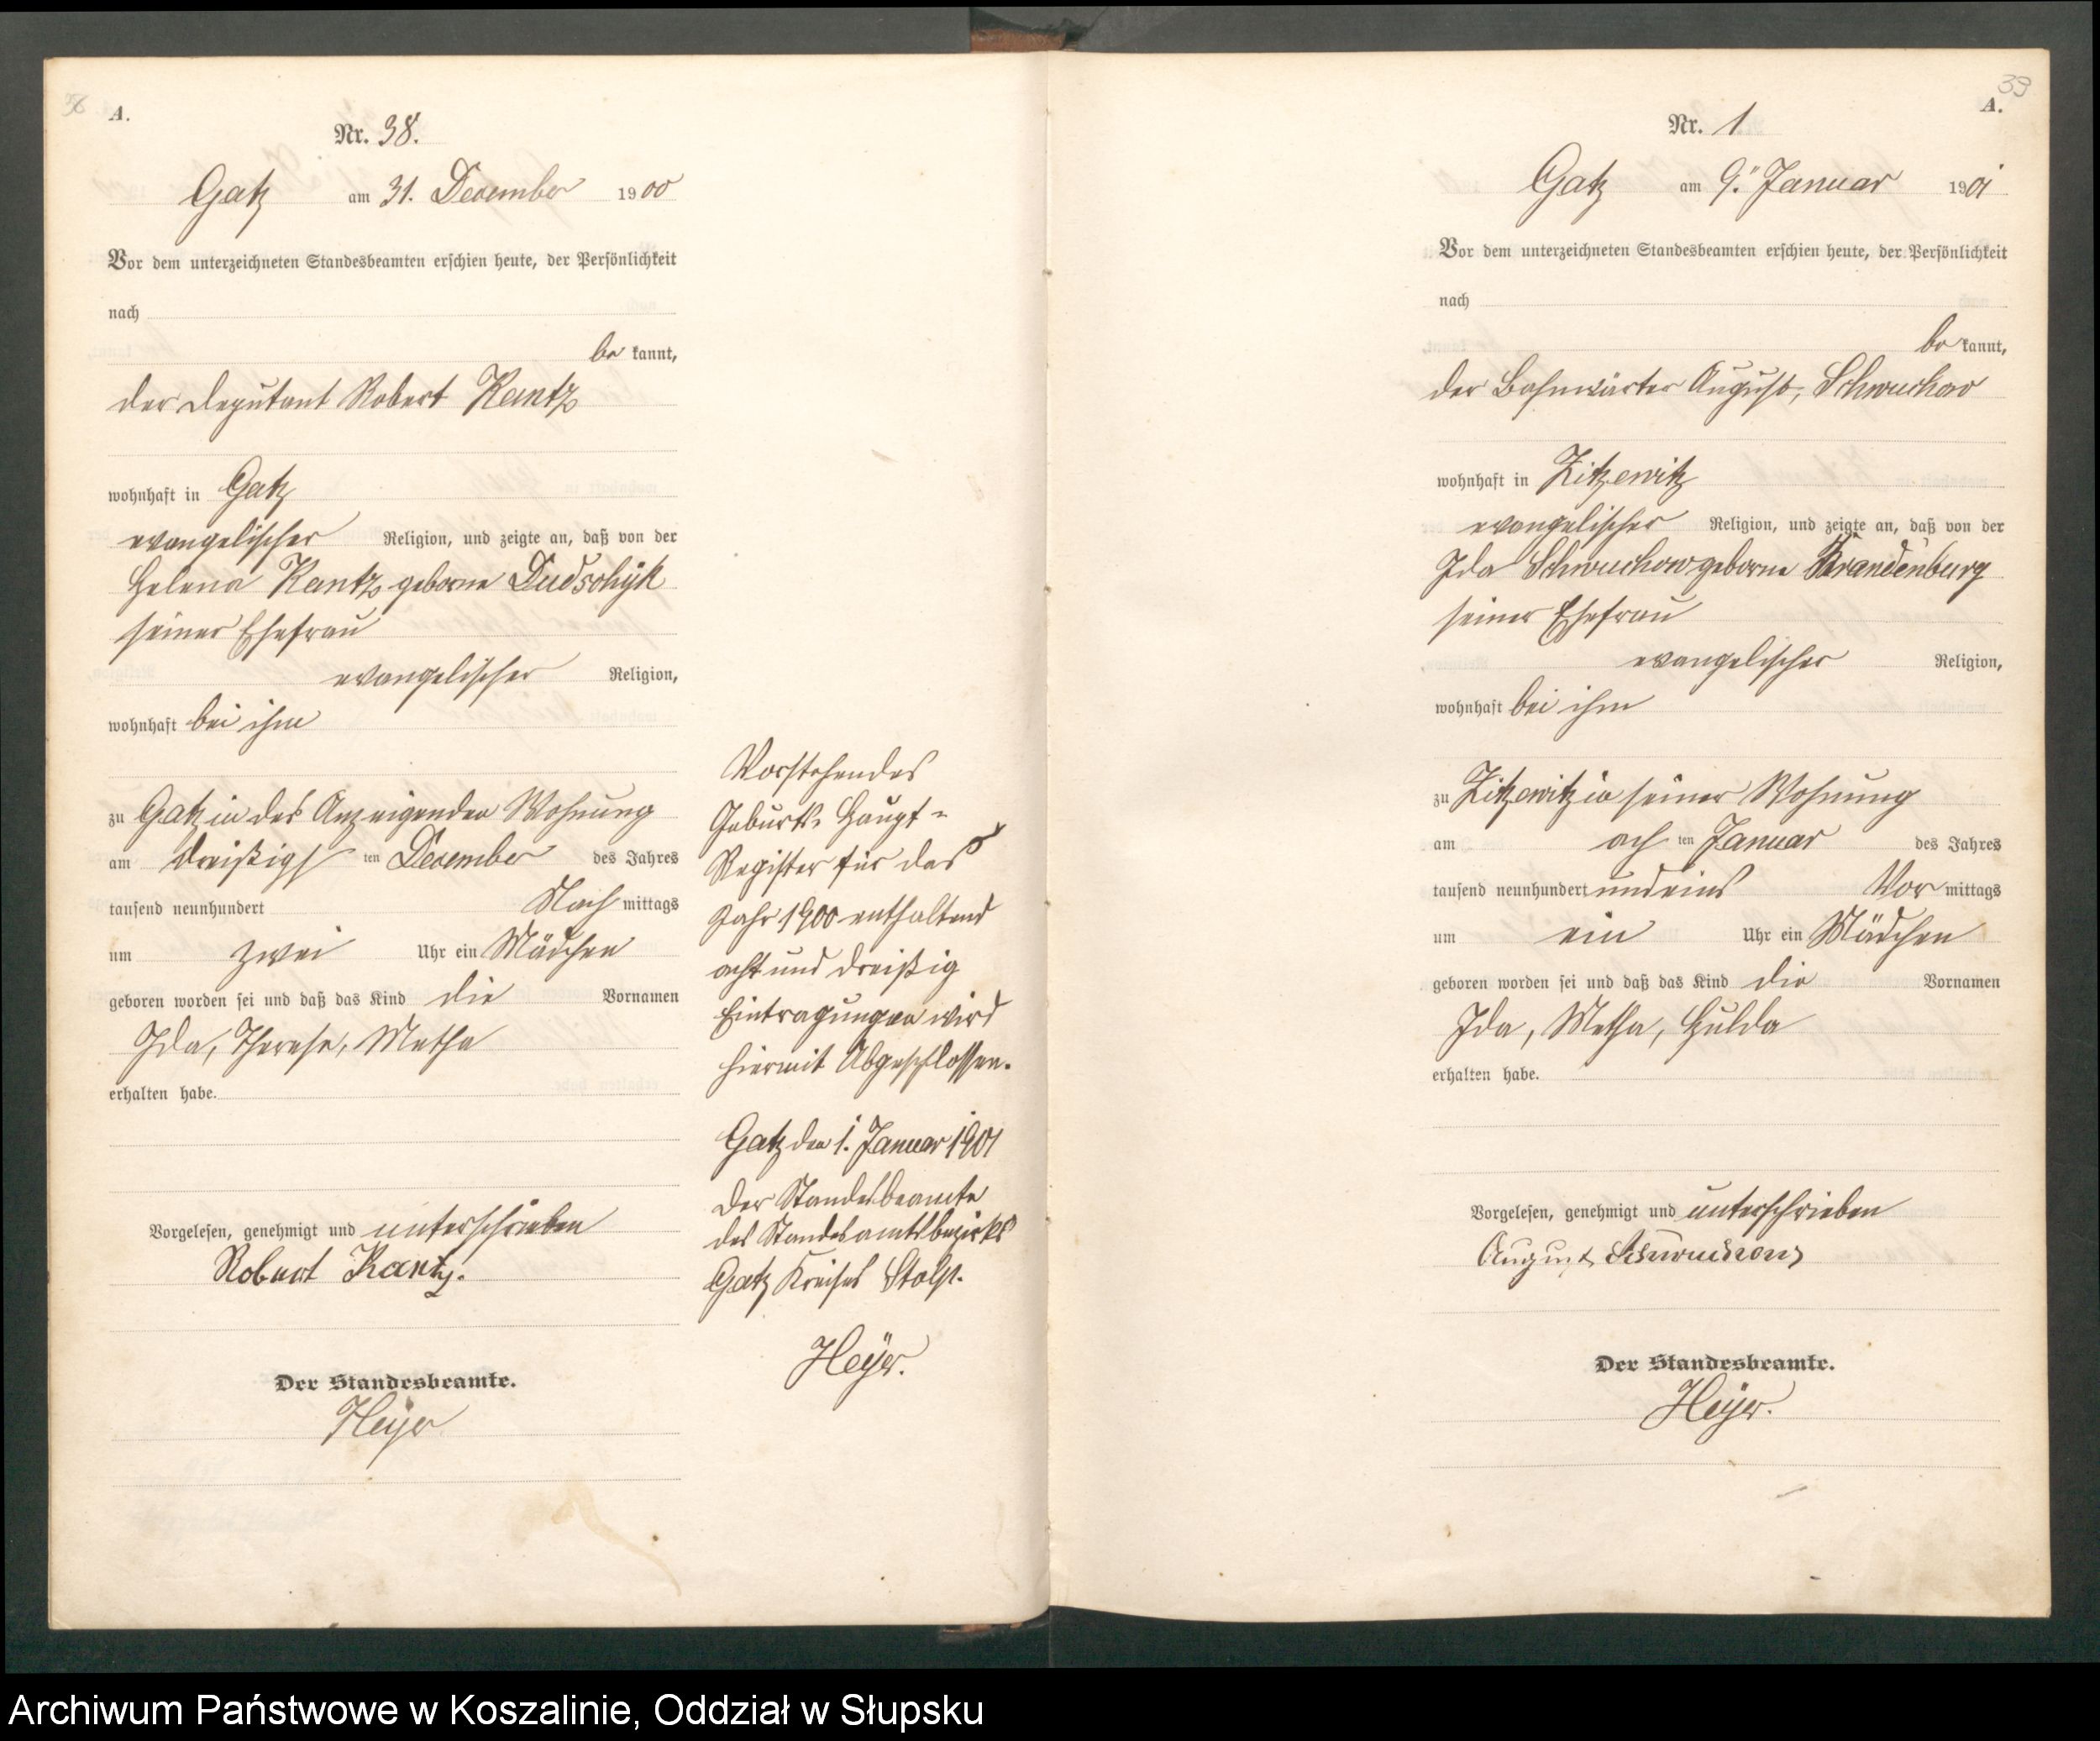 A.
Nr. 38.
Gatz am 31. Dezember 1900
Vor dem unterzeichneten Standesbeamten erschien heute, der Persönlichkeit
nach
be kannt,
der Deputant Robert Kantz
wohnhaft in Gatz
evangelischer Religion, und zeigte an, daß von der
Helene Kantz geborne Dudschyk
seiner Ehefrau
evangelischer Religion,
wohnhaft bei ihm
zu Gatz in des Anzeigenden Wohnung
am dreißigs ten Dezember des Jahres
tausend neunhundert Nach mittags
um zwei Uhr ein Mädchen
geboren worden sei und daß das Kind die Vornamen
Ida, Therese, Metha
erhalten habe.
Vorgelesen, genehmigt und unterschrieben
Robert Kantz.
Der Standesbeamte.
Heyer
Vorstehendes
Geburts-Haupt-
Register für das
Jahr 1900 enthaltend
acht und dreißig
Eintragungen wird
hiermit Abgeschlossen.
Gatz den 1. Januar 1901
Der Standesbeamte
des Standesamtsbezirks
Gatz Kreises Stolp.
Heyer.
39
A.
Nr. 1
Gatz am 9. Januar 1901
Vor dem unterzeichneten Standesbeamten erschien heute, der Persönlichkeit
nach
be kannt,
der Bahnwärter August, Schwuchow
wohnhaft in Zitzewitz
evangelischer Religion, und zeigte an, daß von der
Ida Schwuchow geborne Brandenburg
seiner Ehefrau
evangelischer Religion,
wohnhaft bei ihm
zu Zitzewitz in seiner Wohnung
am ach ten Januar des Jahres
tausend neunhundert und eins Vor mittags
um ein Uhr ein Mädchen
geboren worden sei und daß das Kind die Vornamen
Ida, Metha, Hulda
erhalten habe.
Vorgelesen, genehmigt und unterschrieben
August Schwuchow
Der Standesbeamte.
Heyer.
Archiwum Państwowe w Koszalinie, Oddział w Słupsku